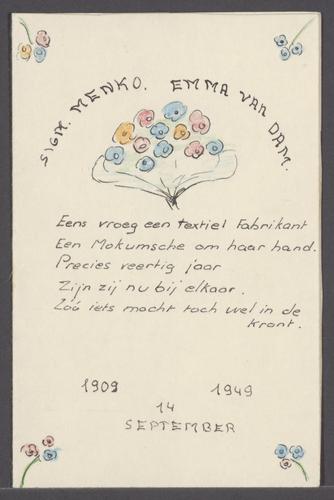 SIGM. MENKO. EMMA VAN DAM.
Eens vroeg een textiel Fabrikant
Een Mokumsche om haar hand.
Precies veertig jaar
Zijn zij nu bij elkaar.
Zóó iets mocht toch wel in de
krant.
1909 1949
14
SEPTEMBER